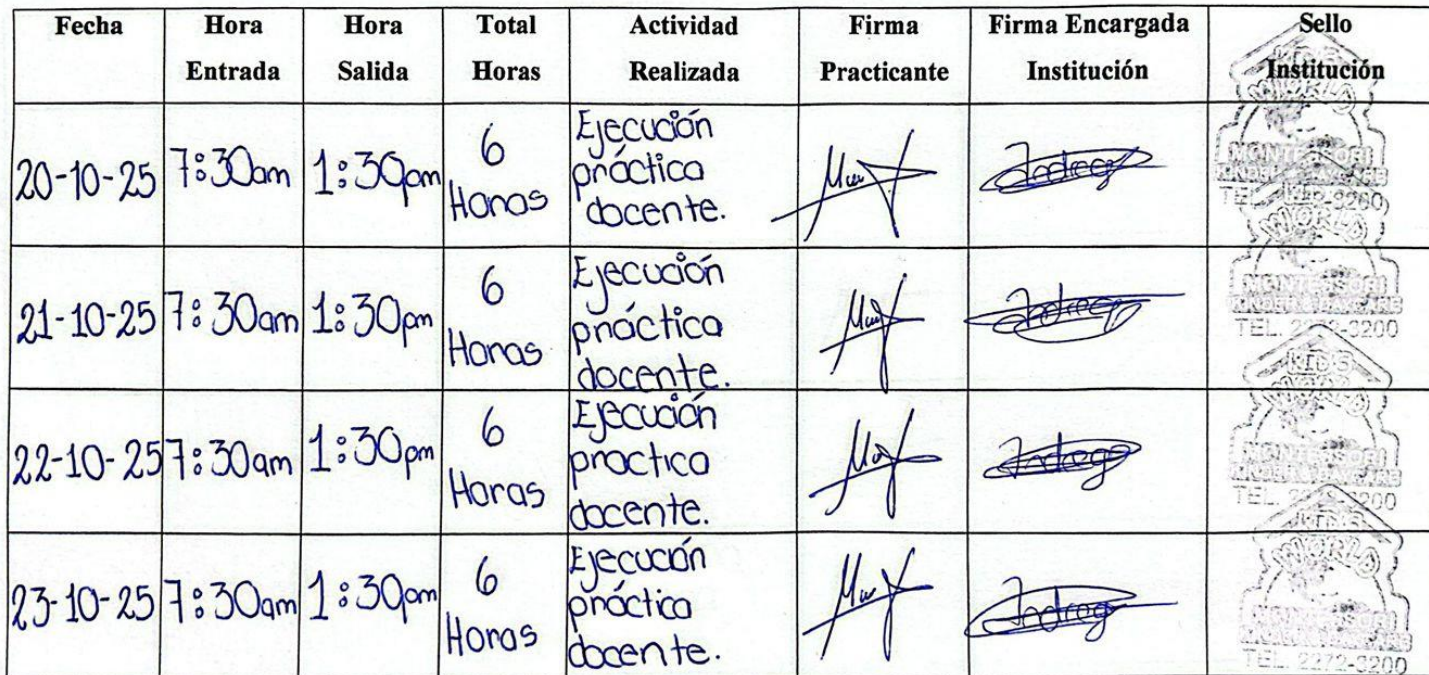 Fecha Hora Entrada Hora Salida Total Horas Actividad Realizada Firma Practicante Firma Encargada Institución Sello Institución
20-10-25 7:30am 1:30pm 6 Horas Ejecución práctica docente.
KID'S
WORLD
MONTESSORI
21-10-25 7:30am 1:30pm 6 Horas Ejecución práctica docente.
WORLD
MONTESSORI
TEL. 2272-3200
22-10-25 7:30am 1:30pm 6 Horas Ejecución practica docente.
KID'S
WORLD
MONTESSORI
TEL. 2272-3200
23-10-25 7:30am 1:30pm 6 Horas Ejecución práctica docente.
KID'S
WORLD
MONTESSORI
TEL. 2272-3200